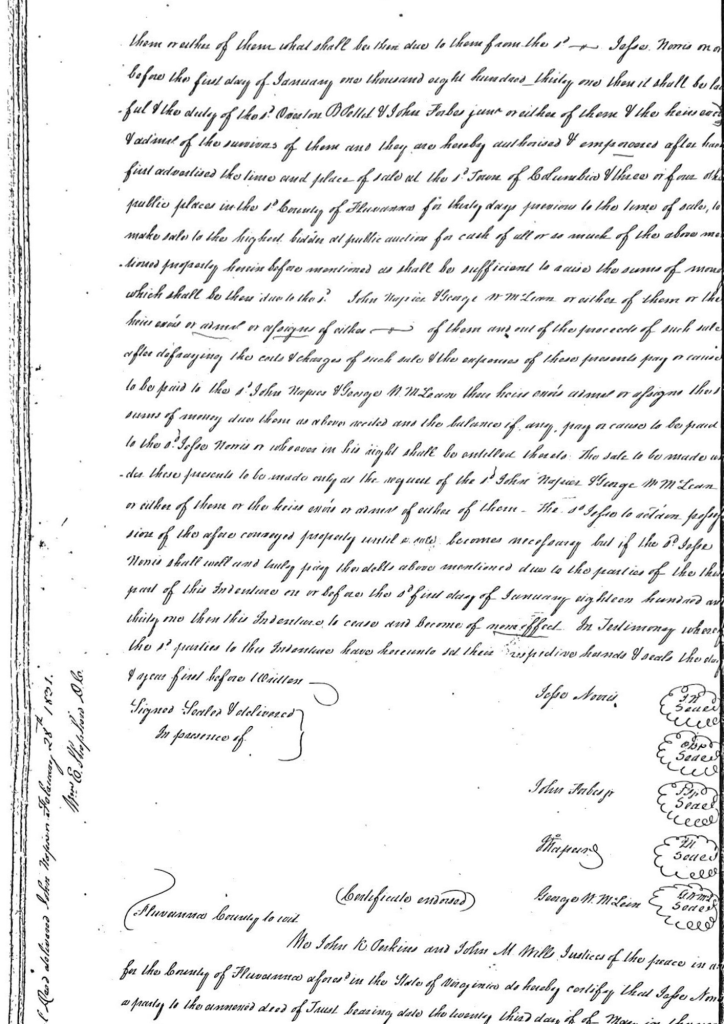 them or either of them what shall be then due to them from the sd Jesse Norris on or
before the first day of January one thousand eight hundred thirty one then it shall be law
-ful & the duty of the sd Overton B Pettet & John Forbes junr or either of them & the heirs
& admrs of the survivors of them and they are hereby authorised & empowered after
first advertised the time and place of sale at the sd Town of Columbia & three or four
public places in the sd County of Fluvanna for thirty days previous to the time of sale, to
make sale to the highest bidder at public auction for cash of all or so much of the above me
-tioned property herein before mentioned as shall be sufficient to raise the sums of mon
which shall be then due to the sd John Napier & George W McLean or either of them or the
heirs exors or admrs or assigns of either of them and out of the proceeds of such sale
after defraying the costs & charges of such sale & the expenses of these presents pay or cause
to be paid to the sd John Napier & George W. McLean their heirs exors admrs or assigns the
sums of money due them as above recited and the balance if any, pay or cause to be paid
to the sd Jesse Norris or whoever in his right shall be entitled thereto. The sale to be made un
-der these presents to be made only at the request of the sd John Napier & George W McLean
or either of them or the heirs exors or admrs of either of them – The sd Jesse to retain posses
sion of the afore conveyed property until a sale becomes necessary but if the sd Jesse
Norris shall well and truly pay the debts above mentioned due to the parties of the thi
part of this Indenture on or before the sd first day of January eighteen hundred an
thirty one then this Indenture to cease and become of none effect. In Testimony where
the sd parties to this Indenture have hereunto set their respective hands & seals the da
& year first before Written
Signed Sealed & delivered
In presence of
Jesse Norris
Seal
Seal
John Forbes jr
Seal
Jno Napier
Seal
George W. McLean
Seal
(Certificate endorsed)
Fluvanna County to wit
We John K Perkins and John M Wills Justices of the peace in a
for the County of Fluvanna aforesd in the State of Virginia do hereby certify that Jesse Nor
a party to the annexed deed of Trust bearing date the twenty third day of of May in the
delivered John Napier February 28th 1831.
Wm E. Stephens D.C.